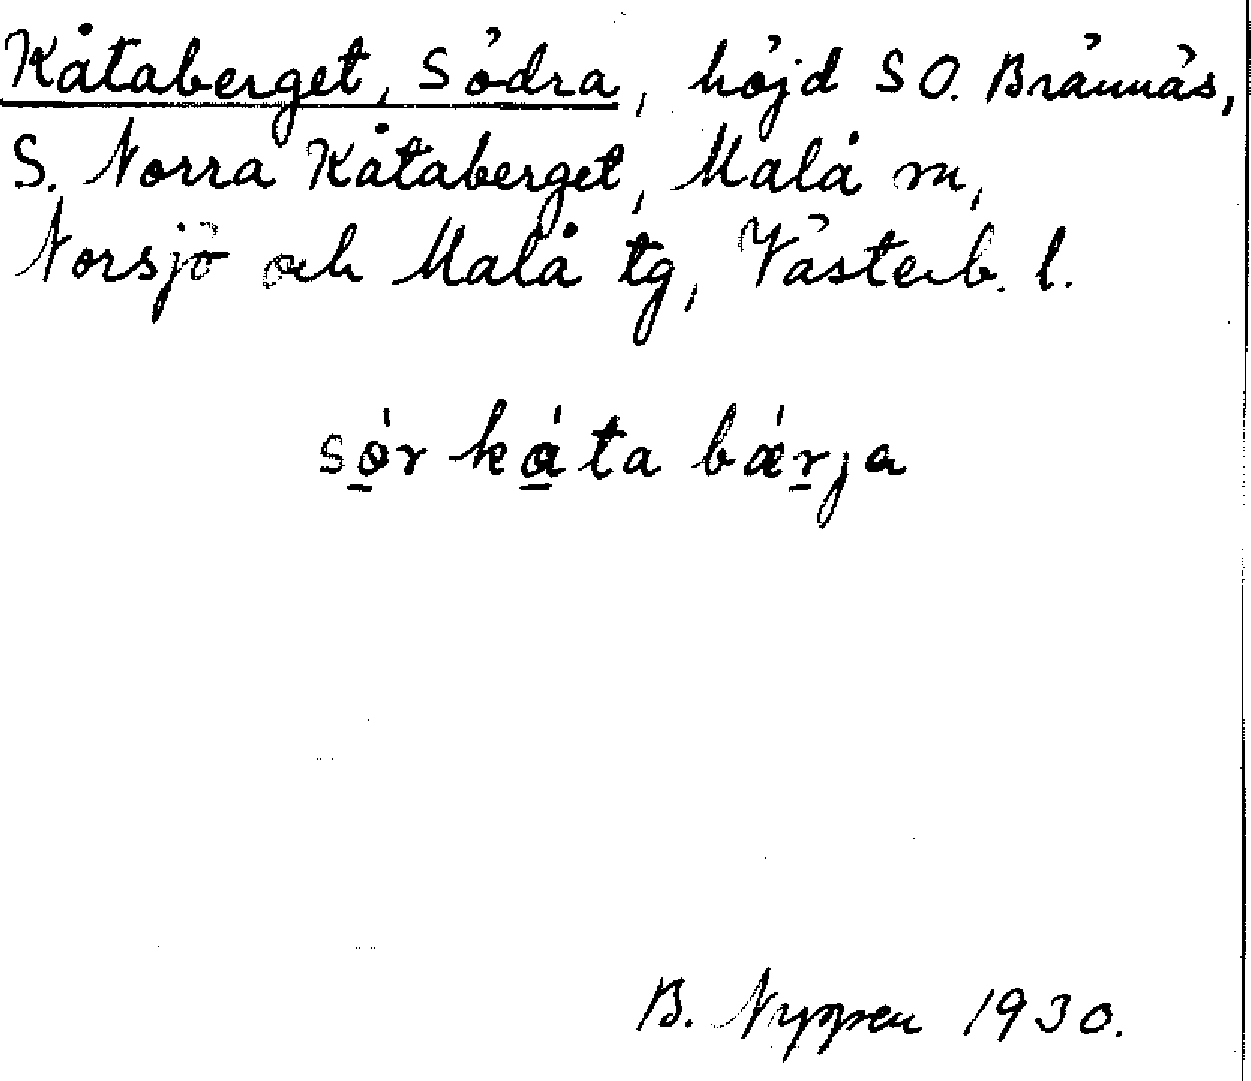 Kåtaberget, Södra, höjd SO. Brännäs,
S. Norra Kåtaberget, Malå m,
Norsjö och Malå tg, Västerb. l.
sǿ̱r kɑ̱́ta bǽṟja
B. Nyppen 1930.